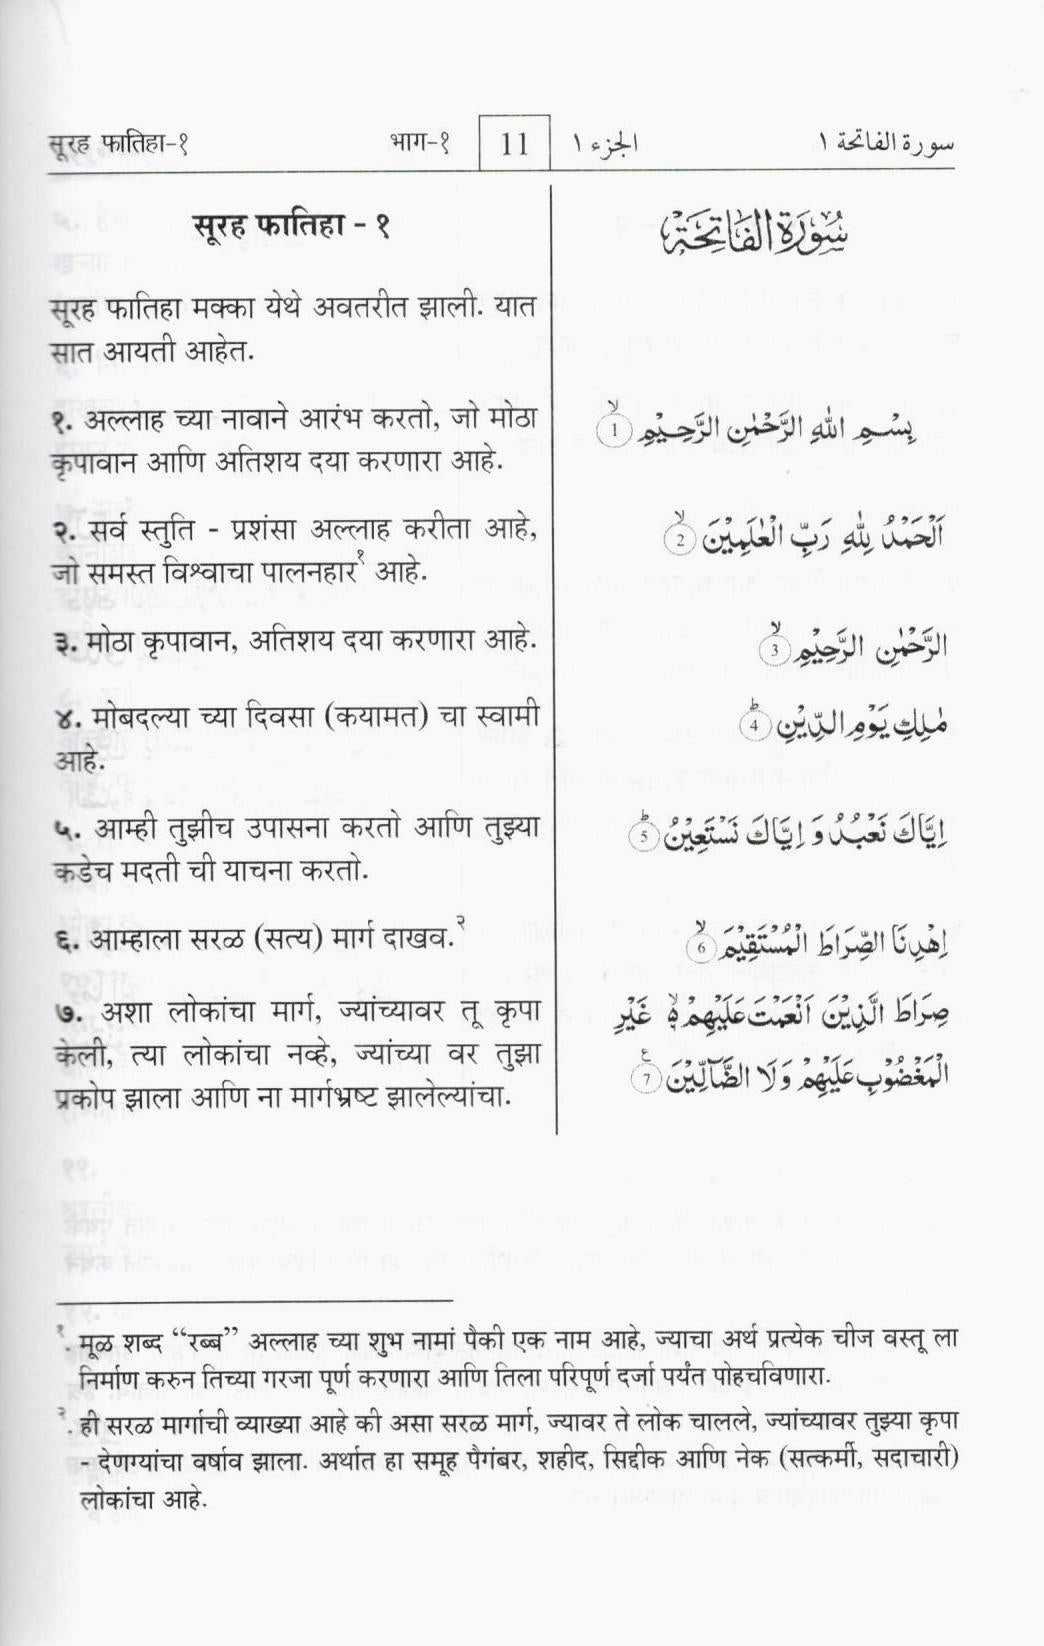 सूरह फातिहा-१ भाग-१ 11 الجزء ١ سورة الفاتحة ١
सूरह फातिहा - १
सूरह फातिहा मक्का येथे अवतरीत झाली. यात
सात आयती आहेत.
१. अल्लाह च्या नावाने आरंभ करतो, जो मोठा
कृपावान आणि अतिशय दया करणारा आहे.
२. सर्व स्तुति - प्रशंसा अल्लाह करीता आहे,
जो समस्त विश्वाचा पालनहार१ आहे.
३. मोठा कृपावान, अतिशय दया करणारा आहे.
४. मोबदल्या च्या दिवसा (कयामत) चा स्वामी
आहे.
५. आम्ही तुझीच उपासना करतो आणि तुझ्या
कडेच मदती ची याचना करतो.
६. आम्हाला सरळ (सत्य) मार्ग दाखव.२
७. अशा लोकांचा मार्ग, ज्यांच्यावर तू कृपा
केली, त्या लोकांचा नव्हे, ज्यांच्या वर तुझा
प्रकोप झाला आणि ना मार्गभ्रष्ट झालेल्यांचा.
سُوْرَةُ الْفَاتِحَةِ
بِسْمِ اللهِ الرَّحْمٰنِ الرَّحِيْمِ ۙ 1
اَلْحَمْدُ لِلّٰهِ رَبِّ الْعٰلَمِيْنَ ۙ 2
الرَّحْمٰنِ الرَّحِيْمِ ۙ 3
مٰلِكِ يَوْمِ الدِّيْنِ ؕ 4
اِيَّاكَ نَعْبُدُ وَ اِيَّاكَ نَسْتَعِيْنُ ؕ 5
اِهْدِنَا الصِّرَاطَ الْمُسْتَقِيْمَ ۙ 6
صِرَاطَ الَّذِيْنَ اَنْعَمْتَ عَلَيْهِمْ ۙ۬ غَيْرِ
الْمَغْضُوْبِ عَلَيْهِمْ وَلَا الضَّآلِّيْنَ ۧ 7
१. मूळ शब्द “रब्ब” अल्लाह च्या शुभ नामां पैकी एक नाम आहे, ज्याचा अर्थ प्रत्येक चीज वस्तू ला
निर्माण करुन तिच्या गरजा पूर्ण करणारा आणि तिला परिपूर्ण दर्जा पर्यंत पोहचविणारा.
२. ही सरळ मार्गाची व्याख्या आहे की असा सरळ मार्ग, ज्यावर ते लोक चालले, ज्यांच्यावर तुझ्या कृपा
- देणग्यांचा वर्षाव झाला. अर्थात हा समूह पैगंबर, शहीद, सिद्दीक आणि नेक (सत्कर्मी, सदाचारी)
लोकांचा आहे.